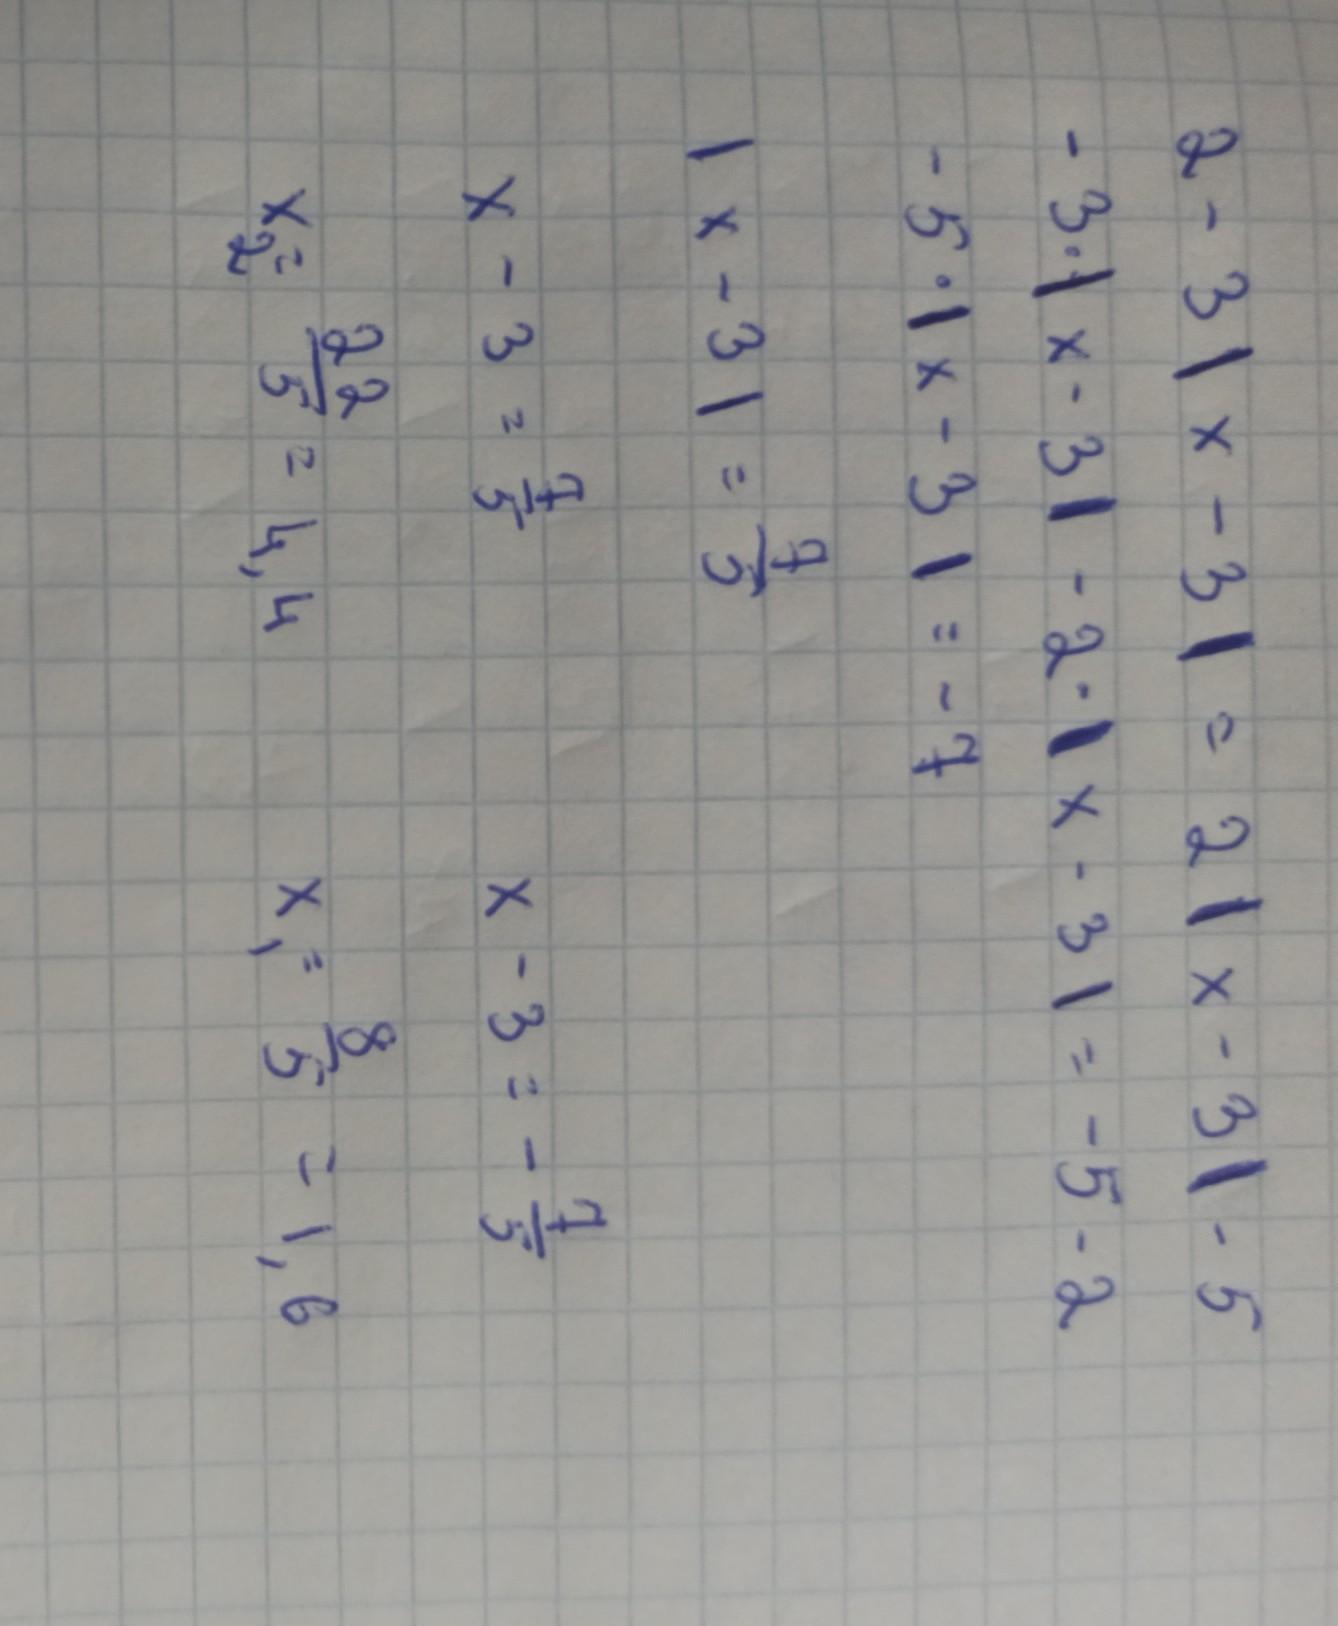 2 - 3 | x - 3 | = 2 | x - 3 | - 5
- 3 · | x - 3 | - 2 · | x - 3 | = - 5 - 2
- 5 · | x - 3 | = - 7
| x - 3 | = 7/5
x - 3 = 7/5 x - 3 = - 7/5
x₂ = 22/5 = 4,4 x₁ = 8/5 = 1,6